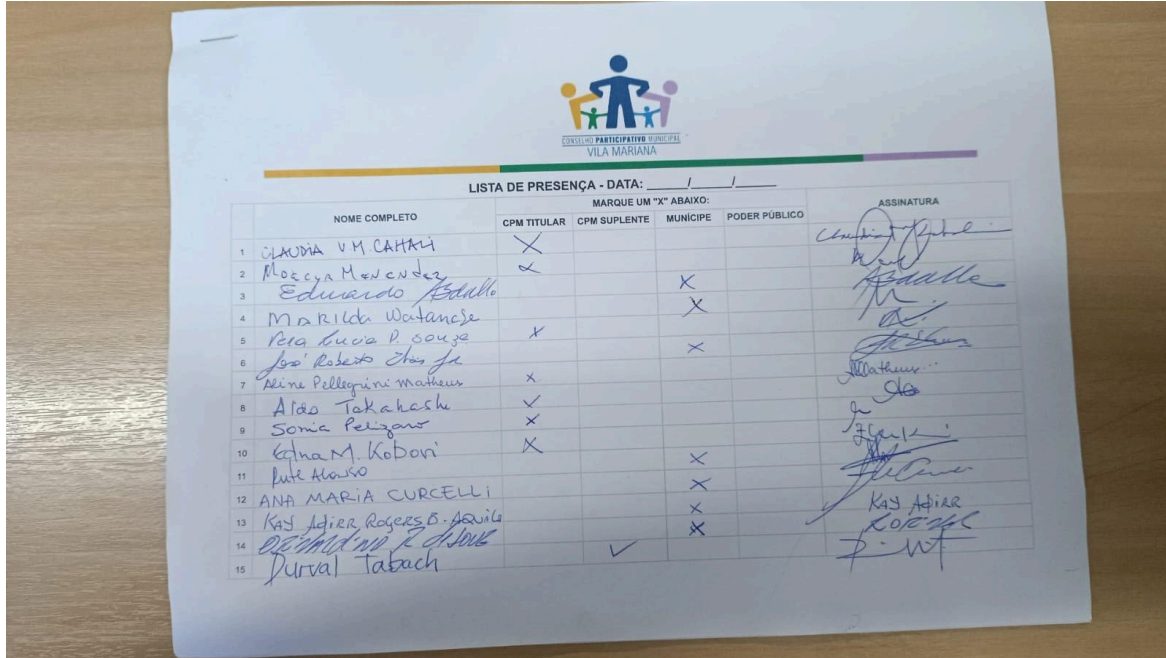 CONSELHO PARTICIPATIVO MUNICIPAL
VILA MARIANA
LISTA DE PRESENÇA - DATA: ______/______/______
MARQUE UM "X" ABAIXO:
NOME COMPLETO CPM TITULAR CPM SUPLENTE MUNÍCIPE PODER PÚBLICO ASSINATURA
1 CLAUDIA V M CAHALI X
2 Menendez X
3 Eduardo Abdalla X Abdalla
4 MARILda Watanabe X
5 Vera Lucia P. Souza X
6 José Roberto X
7 Aline Pellegrini Matheus X Matheus
8 Aldo Takahashi ✓
9 Sonia Pelizaro X
10 Edna M. Kobori X
11 Rute Alonso X
12 ANA MARIA CURCELLI X
13 KAY ADIRR ROGERS B. X KAY ADIRR
14 X
15 Durval Tabach ✓